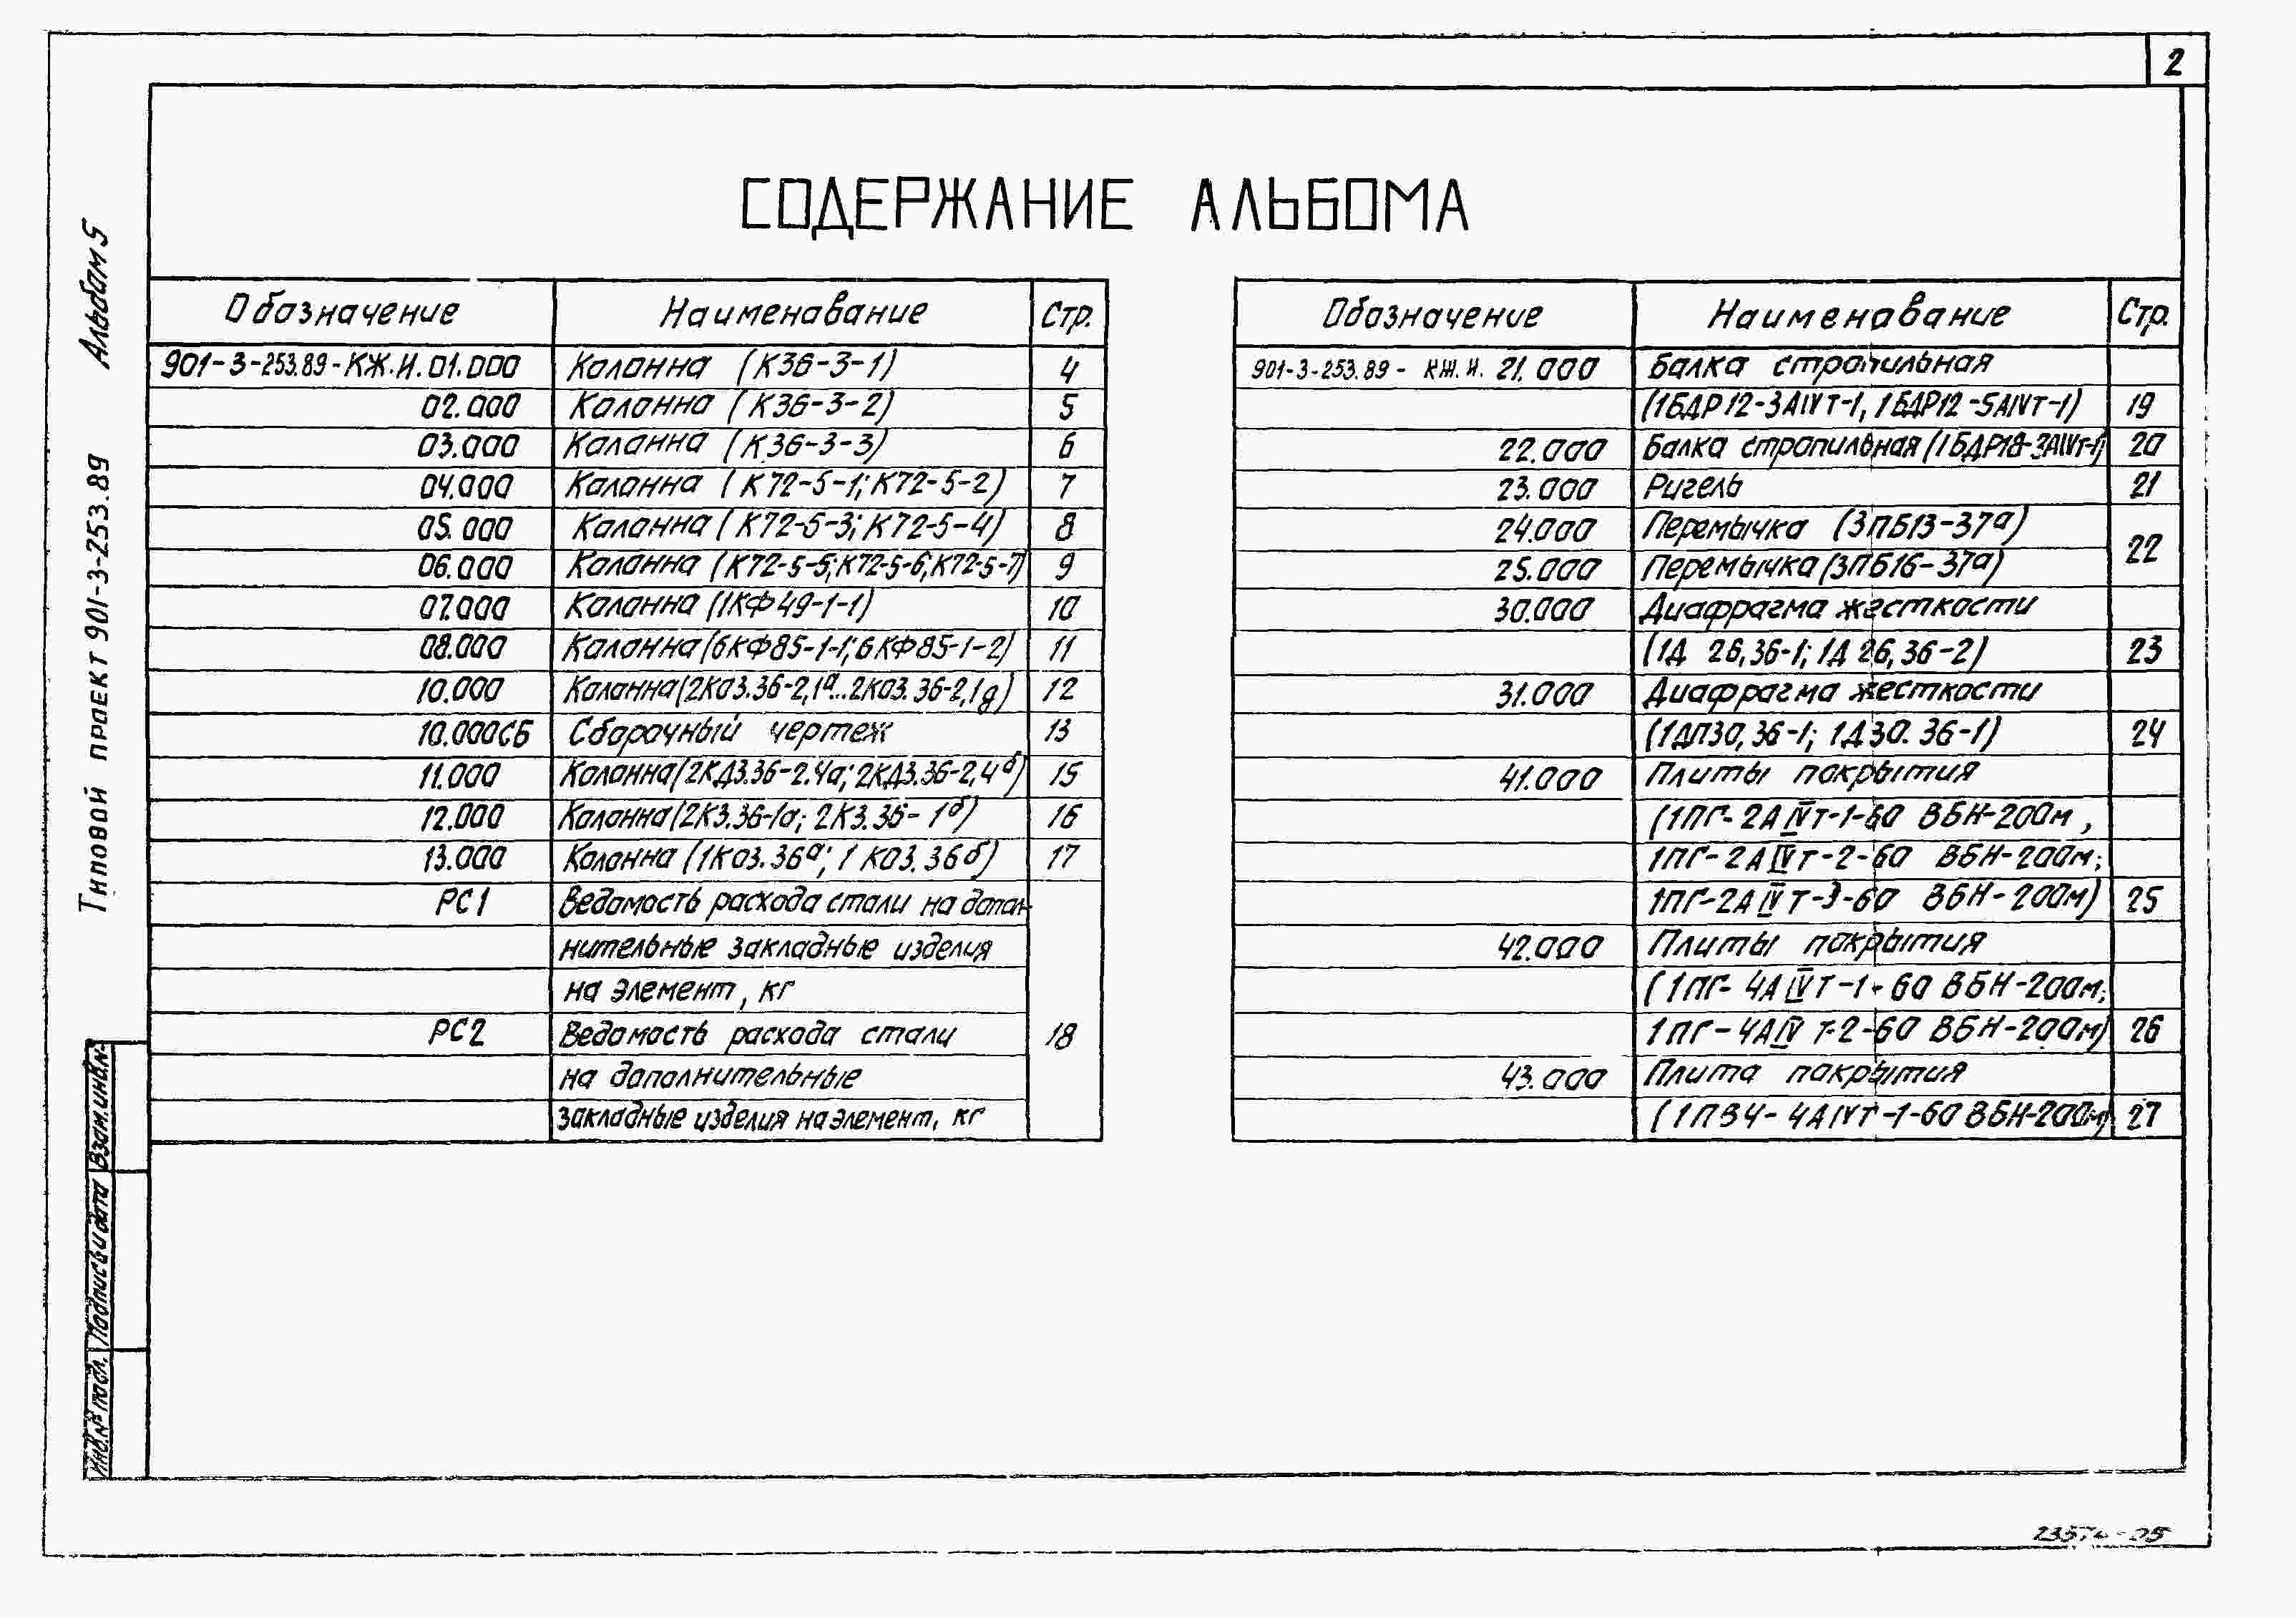 2
СОДЕРЖАНИЕ АЛЬБОМА
Типовой проект 901-3-253.89 Альбом 5
Обозначение Наименование Стр.
901-3-253.89-КЖ.И.01.000 Колонна (К36-3-1) 4
02.000 Колонна (К36-3-2) 5
03.000 Колонна (К36-3-3) 6
04.000 Колонна (К72-5-1; К72-5-2) 7
05.000 Колонна (К72-5-3; К72-5-4) 8
06.000 Колонна (К72-5-5; К72-5-6; К72-5-7) 9
07.000 Колонна (1КФ49-1-1) 10
08.000 Колонна (6КФ85-1-1; 6КФ85-1-2) 11
10.000 Колонна (2КО3.36-2,1а...2КО3.36-2,1д) 12
10.000СБ Сборочный чертеж 13
11.000 Колонна (2КД3.36-2.4а; 2КД3.36-2,4б) 15
12.000 Колонна (2К3.36-1а; 2К3.36-1б) 16
13.000 Колонна (1КО3.36а; 1КО3.36б) 17
РС1 Ведомость расхода стали на допол-
нительные закладные изделия
на элемент, кг
РС2 Ведомость расхода стали 18
на дополнительные
закладные изделия на элемент, кг
Обозначение Наименование Стр.
901-3-253.89-КЖ.И.21.000 Балка стропильная
(1БДР12-3АIVТ-1, 1БДР12-5АIVТ-1) 19
22.000 Балка стропильная (1БДР18-3АIVТ-1) 20
23.000 Ригель 21
24.000 Перемычка (3ПБ13-37а)
22
25.000 Перемычка (3ПБ16-37а)
30.000 Диафрагма жесткости
(1Д 26,36-1; 1Д 26,36-2) 23
31.000 Диафрагма жесткости
(1ДП30,36-1; 1Д30.36-1) 24
41.000 Плиты покрытия
(1ПГ-2АIVТ-1-60 ВБН-200м,
1ПГ-2АIVТ-2-60 ВБН-200м;
1ПГ-2АIVТ-3-60 ВБН-200м) 25
42.000 Плиты покрытия
(1ПГ-4АIVТ-1-60 ВБН-200м;
1ПГ-4АIVТ-2-60 ВБН-200м) 26
43.000 Плита покрытия
(1ПВ4-4АIVТ-1-60 ВБН-200м) 27
Инв.№ подл. Подпись и дата Взам.инв.№